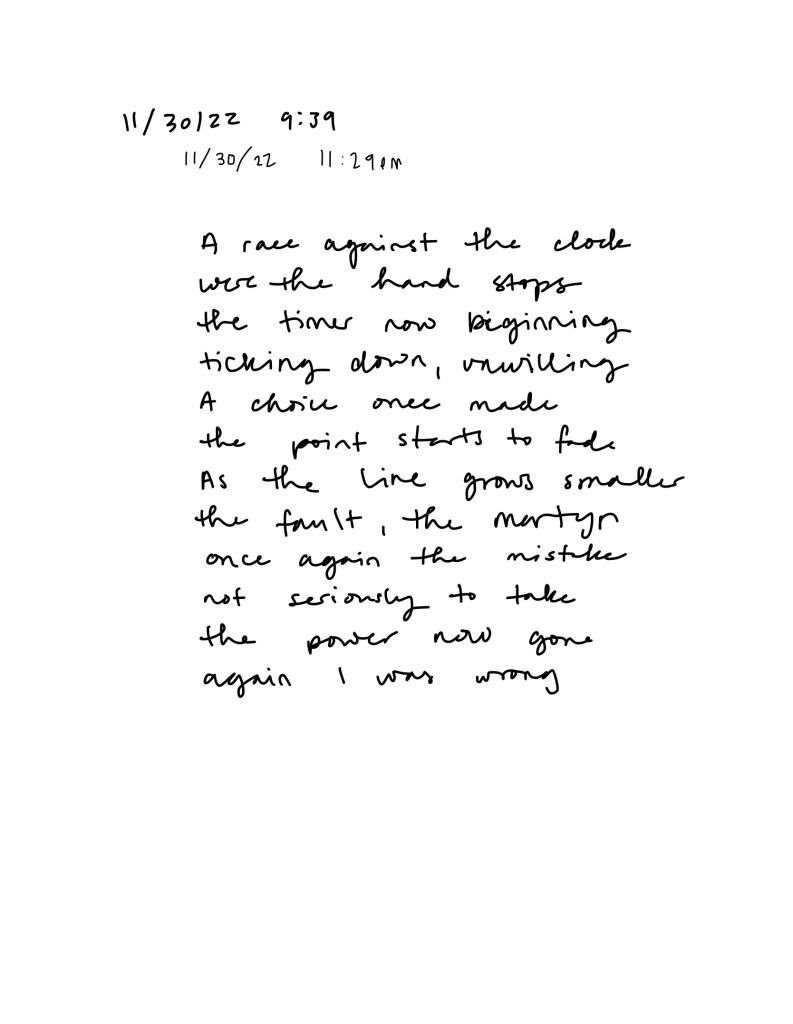 11/30/22 9:39
11/30/22 11:29pm
A race against the clock
were the hand stops
the timer now beginning
ticking down, unwilling
A choice once made
the point starts to fade
As the line grows smaller
the fault, the martyr
once again the mistake
not seriously to take
the power now gone
again I was wrong